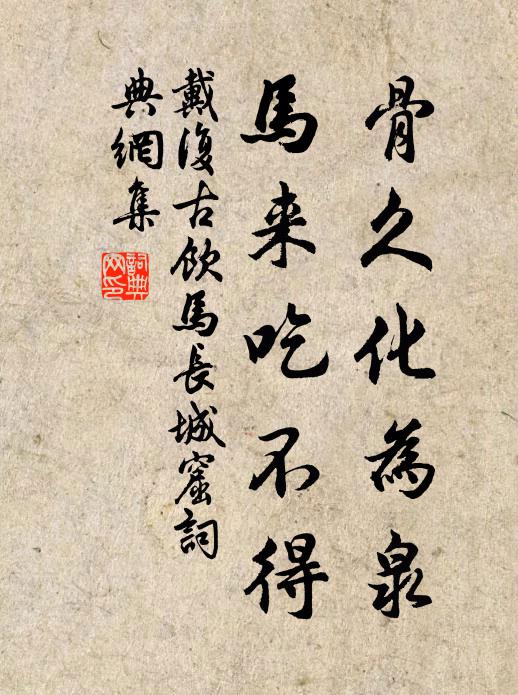 骨久化為泉
馬来吃不得
戴復古飲馬長城窟詞
典網集
詞典网印